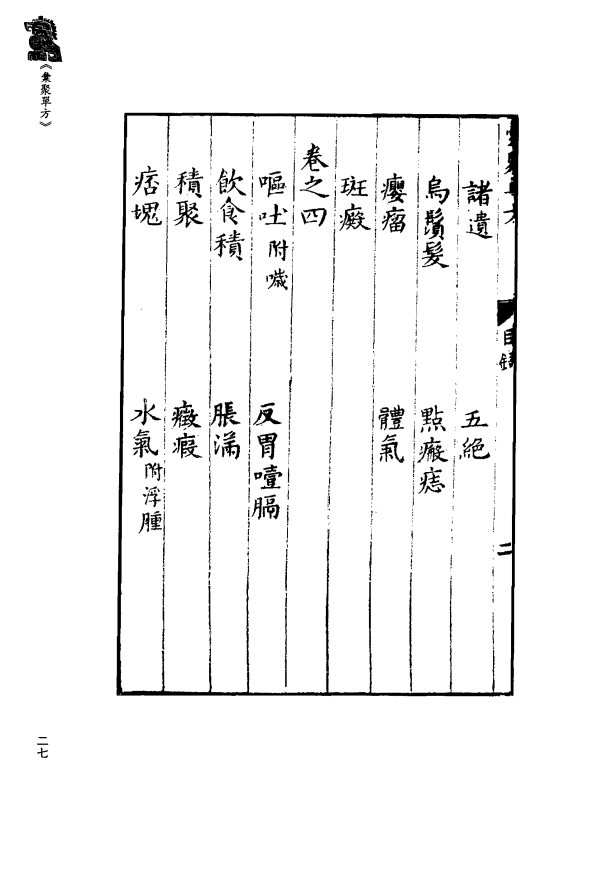 《彙聚單方》
彙聚單方
目錄
二
諸遺
五絕
烏鬚髮
點瘢痣
癭瘤
體氣
斑癜
卷之四
嘔吐附噦
反胃噎膈
飲食積
脹滿
積聚
癥瘕
痞塊
水氣附浮腫
二七